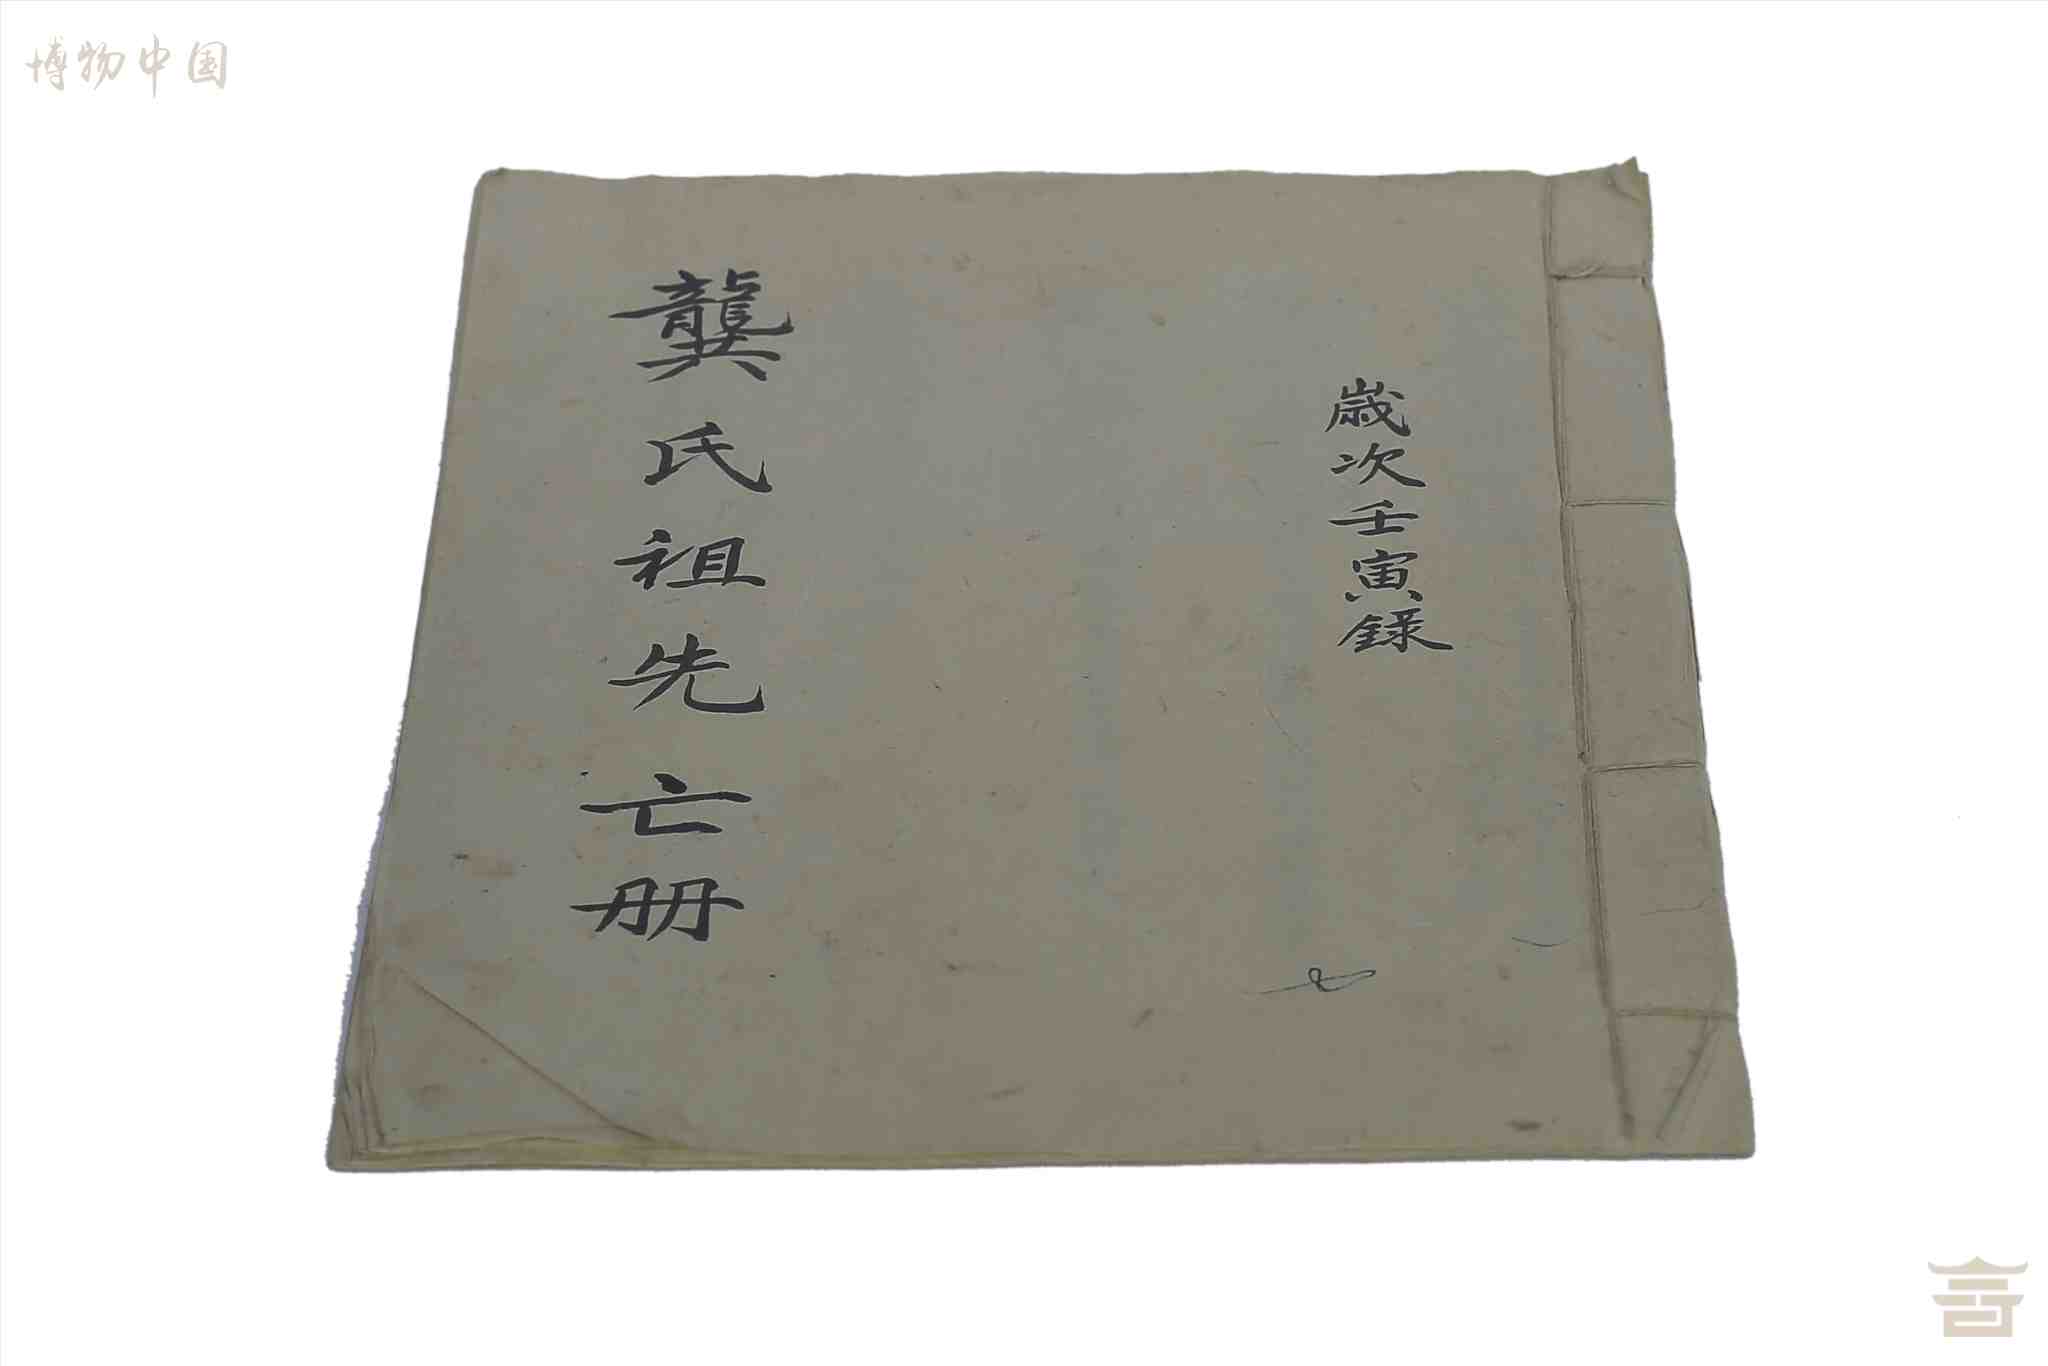 博物中国
歲次壬寅録
龔氏祖先亡册